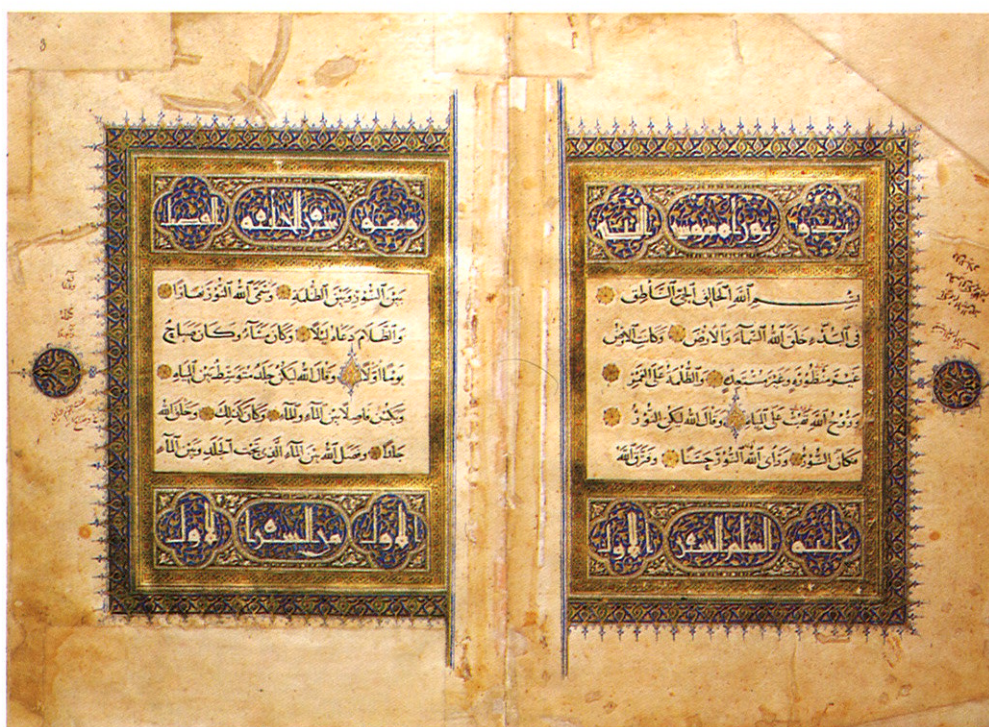 بدو توراه موسى النبي
بسم الله الخالق الحي الناطق
في البدء خلق الله السماء والارض وكانت الارض
غير منظورة وغير مستعدة والظلمة على الغمر
وروح الله على المياه وقال الله ليكن النور
فكان النور وراى الله النور حسنا وفرق الله
عليه السلم السفر الاول
سفر الخليقه الفصل
بين النور وبين الظلمة وسمى الله النور نهارا
والظلام دعاه ليلا وكان مساء وكان صباح
يوما اولا وقال الله ليكن جلد متوسط بين المياه
ويكون فاصلا بين الماء والماء وكان كذلك وخلق الله
جلدا وفصل الله بين الماء الذي تحت الجلد وبين الماء
الاول من السفر الاول